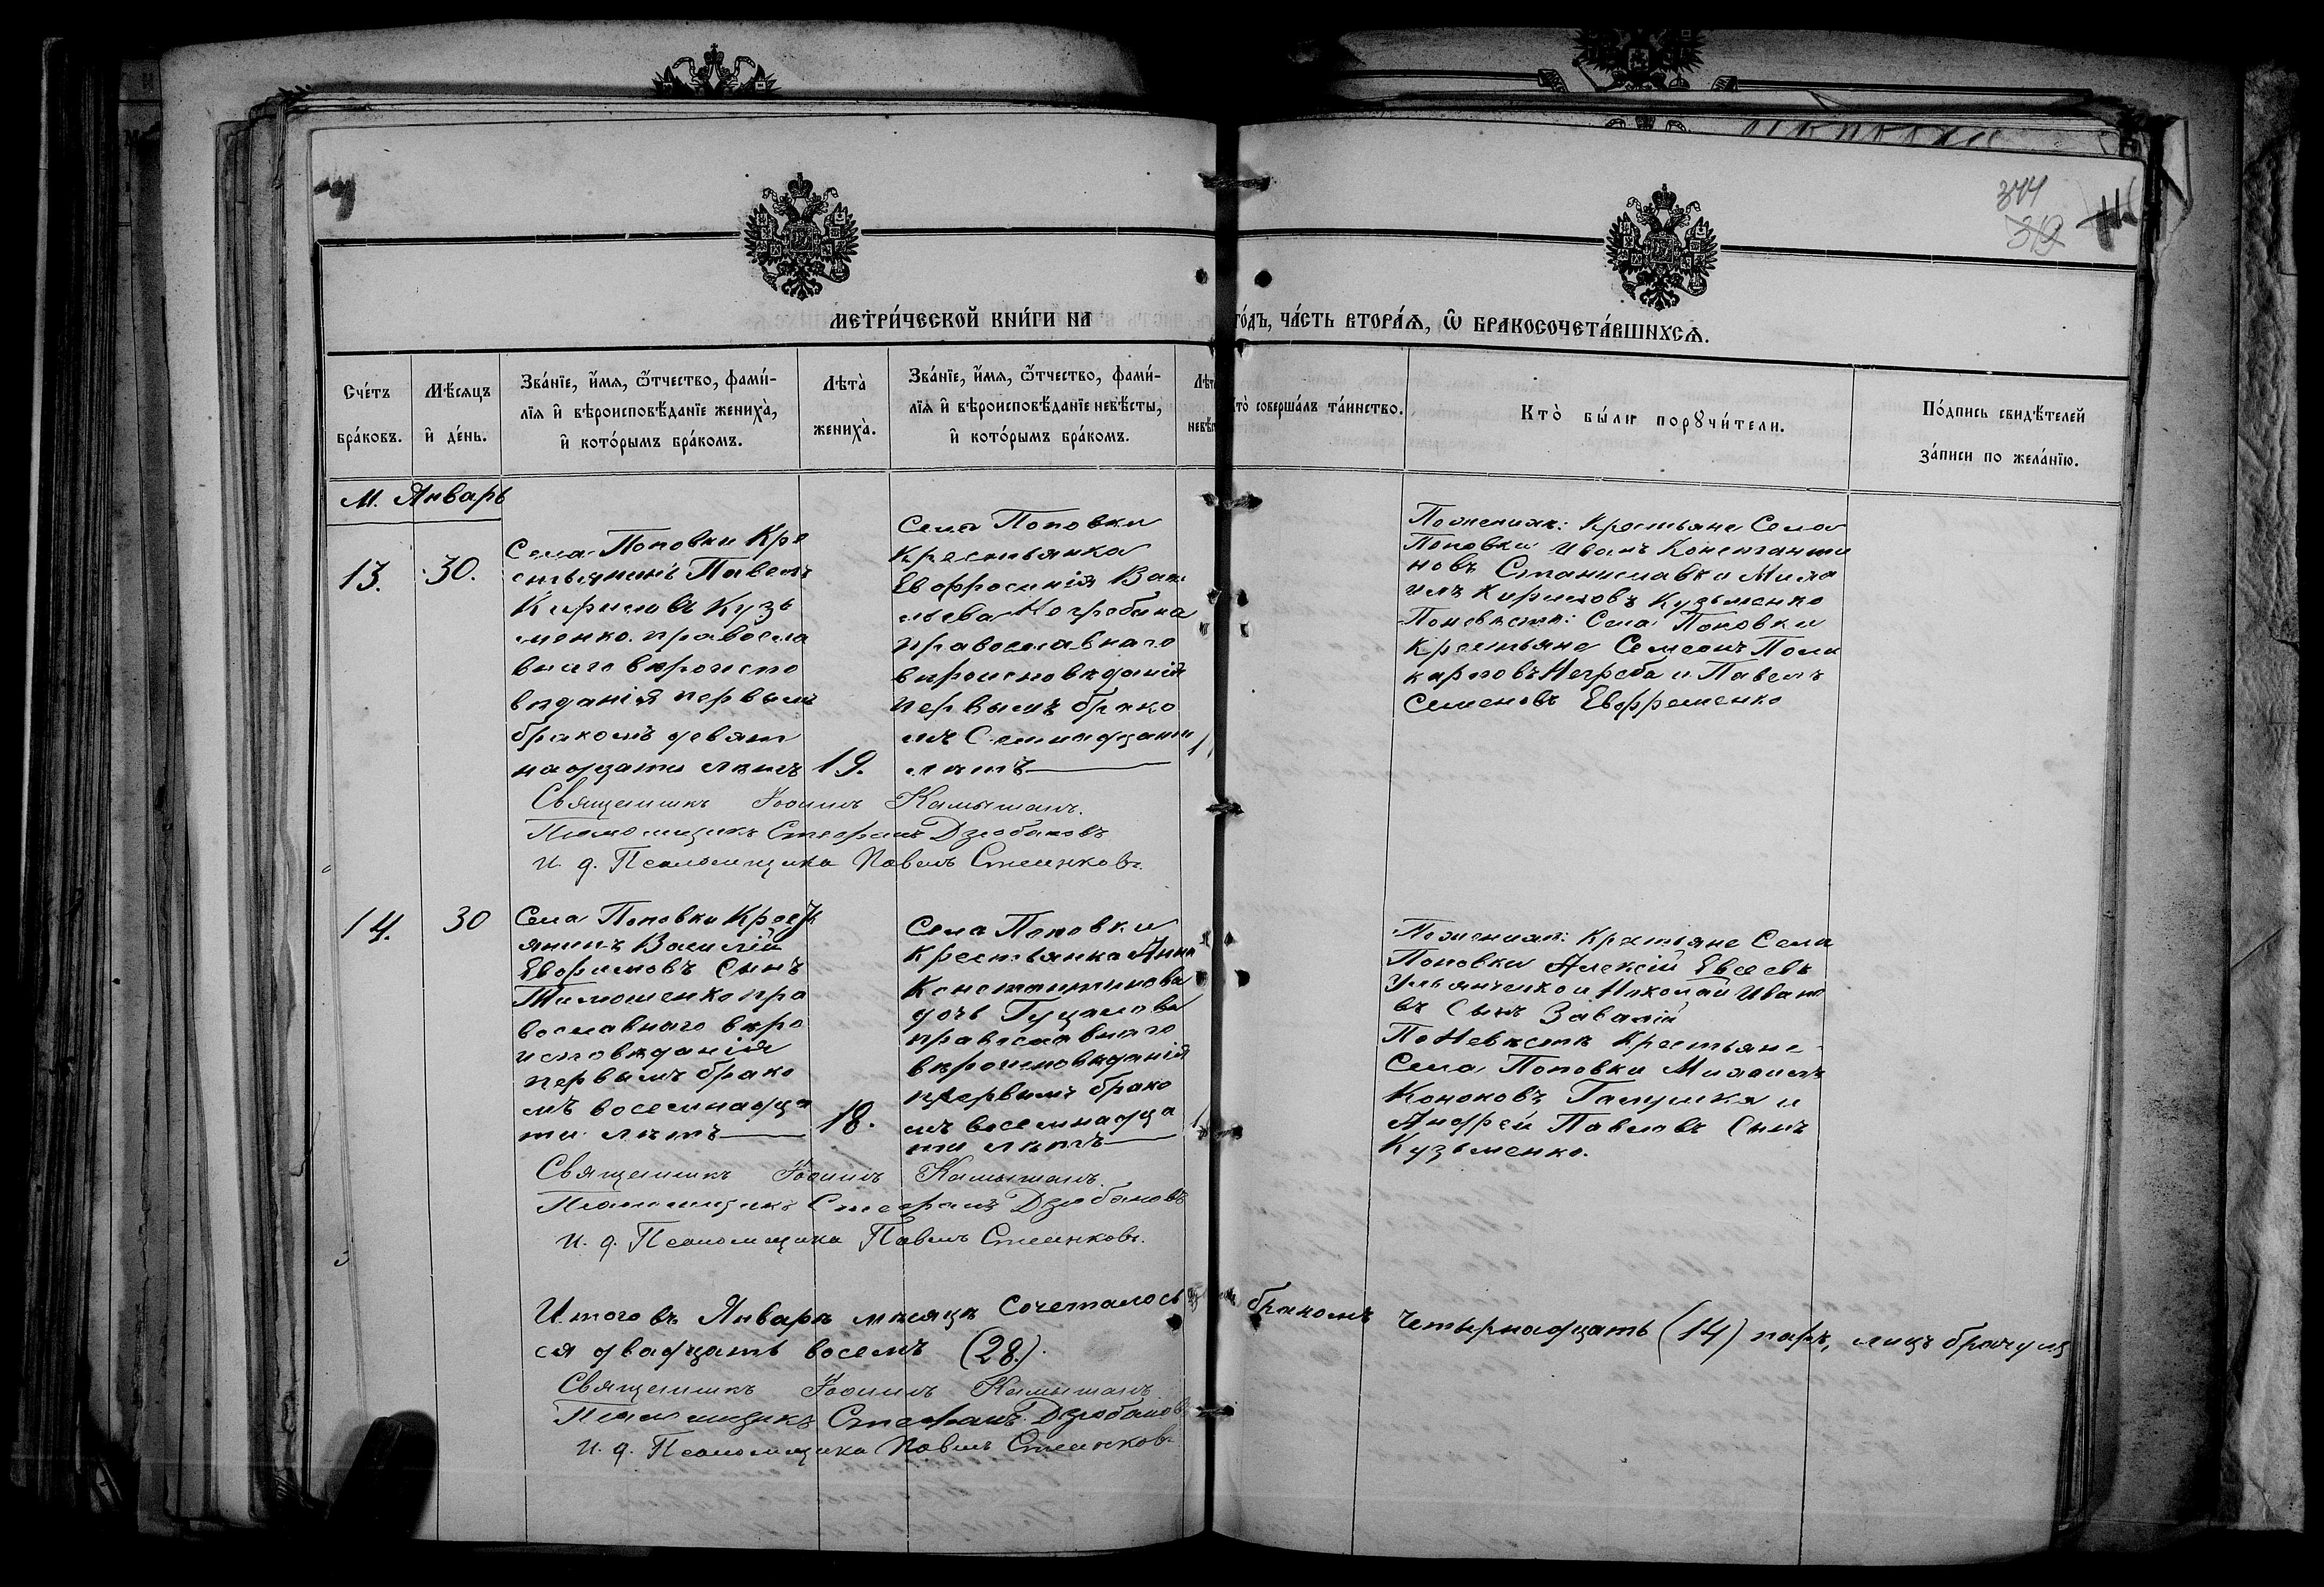 344
319
МЕТРИ́ЧЕСКОЙ КНИ́ГИ НА
ГО́ДЪ, ЧА́СТЬ ВТОРА́Ѧ, Ѽ БРАКОСОЧЕТА́ВШИХСѦ.
Сче́тъ бра́ковъ.
Мѣ́сѧцъ и҆ де́нь.
Зва́нїе, и҆́мѧ, ѻ҆́тчество, фами́-
лїѧ и҆ вѣроисповѣ́данїе жениха̀,
и҆ кото́рымъ бра́комъ.
Лѣта̀
жениха̀.
Зва́нїе, и҆́мѧ, ѻ҆́тчество, фами́-
лїѧ и҆ вѣроисповѣ́данїе невѣ́сты,
и҆ кото́рымъ бра́комъ.
Кто̀ соверша́лъ та́инство.
Кто̀ бы́ли порꙋчи́тели.
По́дпись свидѣ́телей
за́писи по жела́нїю.
М. Январь
13.
30.
Села Поповки Кре
стьянинъ Павелъ
Кирилов Кузь
менко. правосла
внаго вѣроиспо
вѣданія первымъ
бракомъ девят
надцати лѣтъ
19.
Села Поповки
Крестьянка
Евфросинія Васи
льева Негребина
православнаго
вѣроисповѣданія
первымъ брако
мъ Семнадцати
лѣтъ
Поженихѣ: Крестьяне Села
Поповки Иванъ Константи
новъ Станиславка Миха
илъ Кириловъ Кузьменко
Поневѣстѣ: Села Поповки
Крестьяне Семенъ Поли
карповъ Негреба и Павелъ
Семеновъ Евфременко
Священникъ Іоаннъ Камышанъ.
Псаломщикъ Стефанъ Дзюбановъ
И. д. Псаломщика Павелъ Стеенковъ.
14.
30
Села Поповки Крест
янинъ Василій
Евфимовъ Сынъ
Тимошенко пра
вославнаго вѣро
исповѣданія
первымъ брако
мъ восемнадца
ти лѣтъ
18.
Села Поповки
Крестьянка Анна
Константинова
дочь Гуцалова
православнаго
вѣроисповѣданія
первымъ брако
мъ восемнадца
ти лѣтъ
Поженихѣ: Крестьяне Села
Поповки Алексій Евсеевъ
Ульянченко и Николай Ивано
въ Сынъ Завалій
По Невѣстѣ Крестьяне
Села Поповки Михаилъ
Кононовъ Галушка и
Андрей Павловъ Сынъ
Кузьменко.
Священникъ Іоаннъ Камышанъ.
Псаломщикъ Стефанъ Дзюбановъ
И. д. Псаломщика Павелъ Стеенковъ.
Итого въ Январѣ мѣсяцѣ Сочеталось бракомъ Четырнадцать (14) паръ, лицъ брачущ
ся двадцать восемъ (28).
Священникъ Іоаннъ Камышанъ
Псаломщикъ Стефанъ Дзюбановъ
И. д. Псаломщика Павелъ Стеенковъ